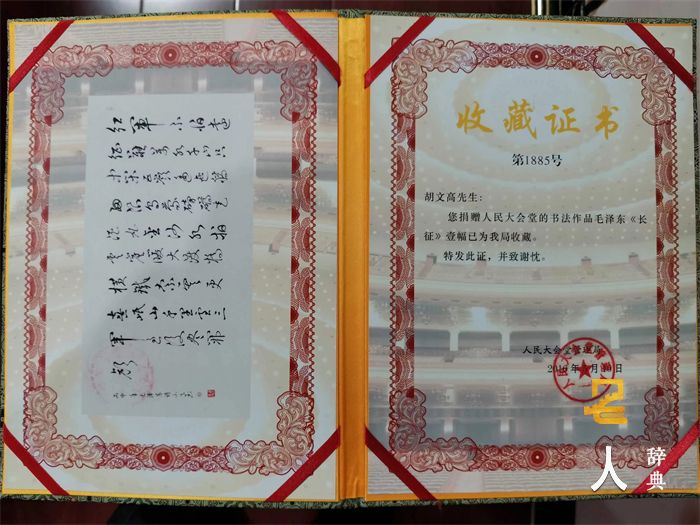 红军不怕远
征难万水千山只
等闲五岭逶迤腾
细浪乌蒙磅礴走
泥丸金沙水拍
云崖暖大渡桥
横铁索寒更
喜岷山千里雪三
军过后尽开颜
收藏证书
第1885号
胡文高先生:
您捐赠人民大会堂的书法作品毛泽东《长
征》壹幅已为我局收藏。
特发此证,并致谢忱。
人民大会堂管理局
名
人
辞
典